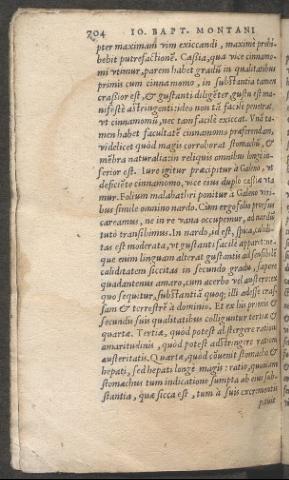 704 IO. BAPT. MONTANI
pter maximam vim exiccandi, maximè prohi-
bebit putrefactionẽ. Caßia, qua vice cinnamo-
mi vtimur, parem habet gradũ in qualitatibus
primis cum cinnamomo, in substãtia tamen
craßior est, & gustanti diligẽter, gustu est ma-
nifestè adstringenti: ideo non tã facile penetrat,
vt cinnamomũ, nec tam facile exiccat. Vnã ta-
men habet facultatẽ cinnamomo præferendam,
videlicet quòd magis corroborat stomachũ, &
mẽbra naturalia: in reliquis omnibus longè in-
ferior est. Iure igitur præcipitur à Galeno, vt
deficiẽte cinnamomo, vice eius duplo caßiæ vta
mur. Folium malabathri ponitur à Galeno viri-
bus simile omnino nardo. Cùm ergo folio prorsus
careamus, ne in re vana occupemur, ad nardũ
tutò transibimus. In nardo, id est, spica, calidi-
tas est moderata, vt gustanti facilè apparet: ne-
que enim linguam alterat gustantis ad sensibilẽ
caliditatem siccitas in secundo gradu, sapore
quadantenus amaro, cum acerbo vel austero: ex
quo sequitur, substãtiã quoq; illi adesse craf-
sam & terrestrẽ à dominio. Et ex his primis &
secundis suis qualitatibus colliguntur tertiæ &
quartæ. Tertiæ, quòd potest abstergere ratione
amaritudinis, quòd potest adstringere ratione
austeritatis. Quartæ, quòd cõuenit stomacho &
hepati, sed hepati longè magis: ratio, quoniam
stomachus tum indicatione sumpta ab eius sub-
stantia, quæ sicca est, tum à suis excrementis